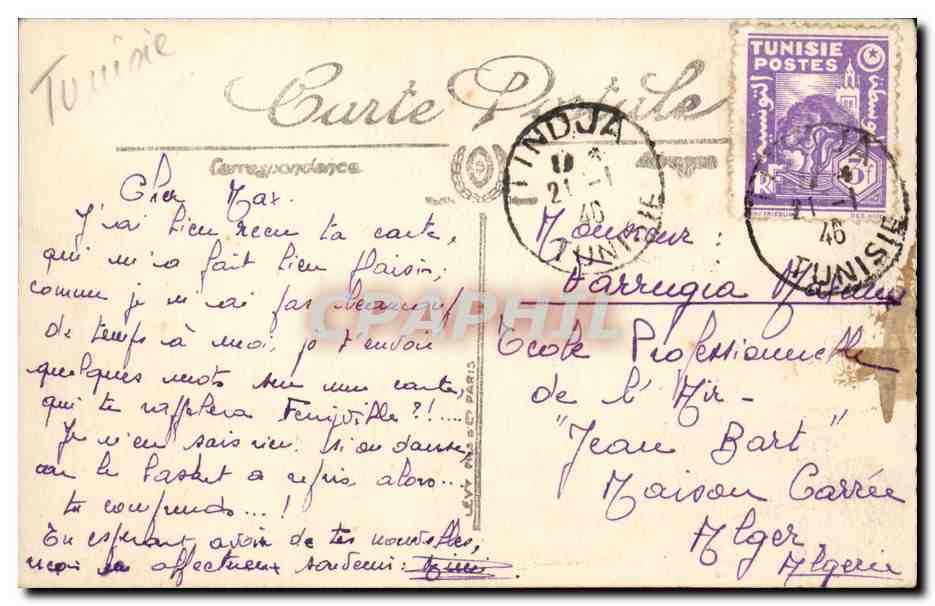 Tunisie
Carte Postale
Correspondance
TUNISIE
POSTES
RF
5f
TINDJA
21-1
46
TUNISIE
TINDJA
21-1
46
TUNISIE
Cher Max.
J'ai bien reçu ta carte,
qui m'a fait bien plaisir,
comme je n'ai pas beaucoup
de temps à moi, je t'envoie
quelques mots sur une carte,
qui te rappelera Ferryville ?!....
Je n'en sais rien si on danse,
car le basket a repris alors...
tu comprends...!
En espérant avoir de tes nouvelles,
affectueux souvenir: Mimi
LEVY PARIS
Monsieur:
Farrugia
Ecole Professionnelle
de l'Air -
"Jean Bart"
Maison Carrée
Alger
Algérie
CPAPHIL